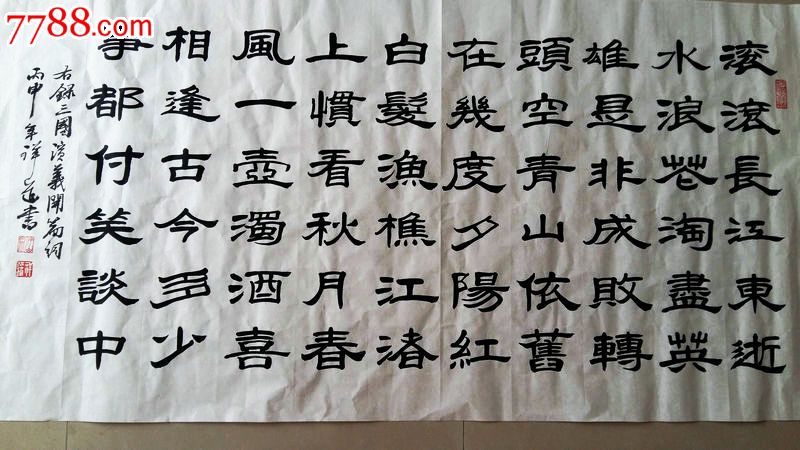 7788.com
滚滚長江東逝
水浪花淘盡英
雄是非成敗轉
頭空青山依舊
在幾度夕陽紅
白髮漁樵江渚
上慣看秋月春
風一壺濁酒喜
相逢古今多少
事都付笑談中
右録三國演義開篇詞
丙申年祥書